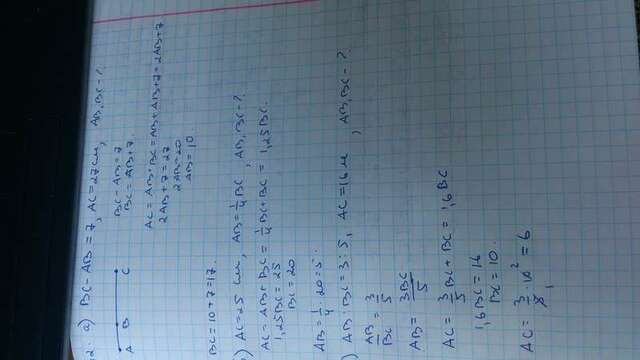 2. а) BC - AB = 7, AC = 27 см, AB, BC - ?
A B C
BC - AB = 7
BC = AB + 7.
AC = AB + BC = AB + AB + 7 = 2AB + 7
2AB + 7 = 27
2AB = 20
AB = 10
BC = 10 + 7 = 17.
) AC = 25 см, AB = 1/4 BC, AB, BC - ?
AC = AB + BC = 1/4 BC + BC = 1,25 BC.
1,25 BC = 25
BC = 20
AB = 1/4 · 20 = 5
) AB : BC = 3 : 5, AC = 16 м, AB, BC - ?
AB/BC = 3/5
AB = 3BC/5
AC = 3/5 BC + BC = 1,6 BC
1,6 BC = 16
BC = 10.
AC = 3/5 · 10 = 6